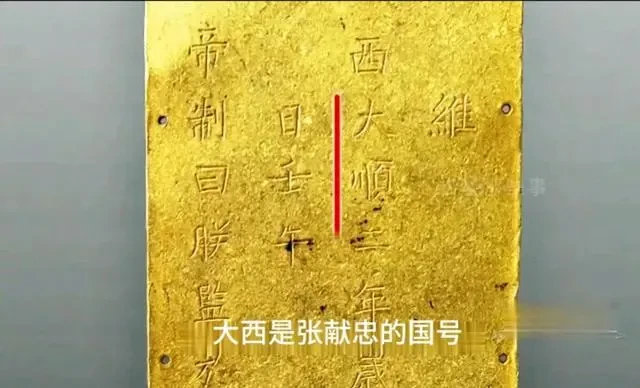 維
西大順二年歲
日壬午
帝制曰朕監
大西是张献忠的国号